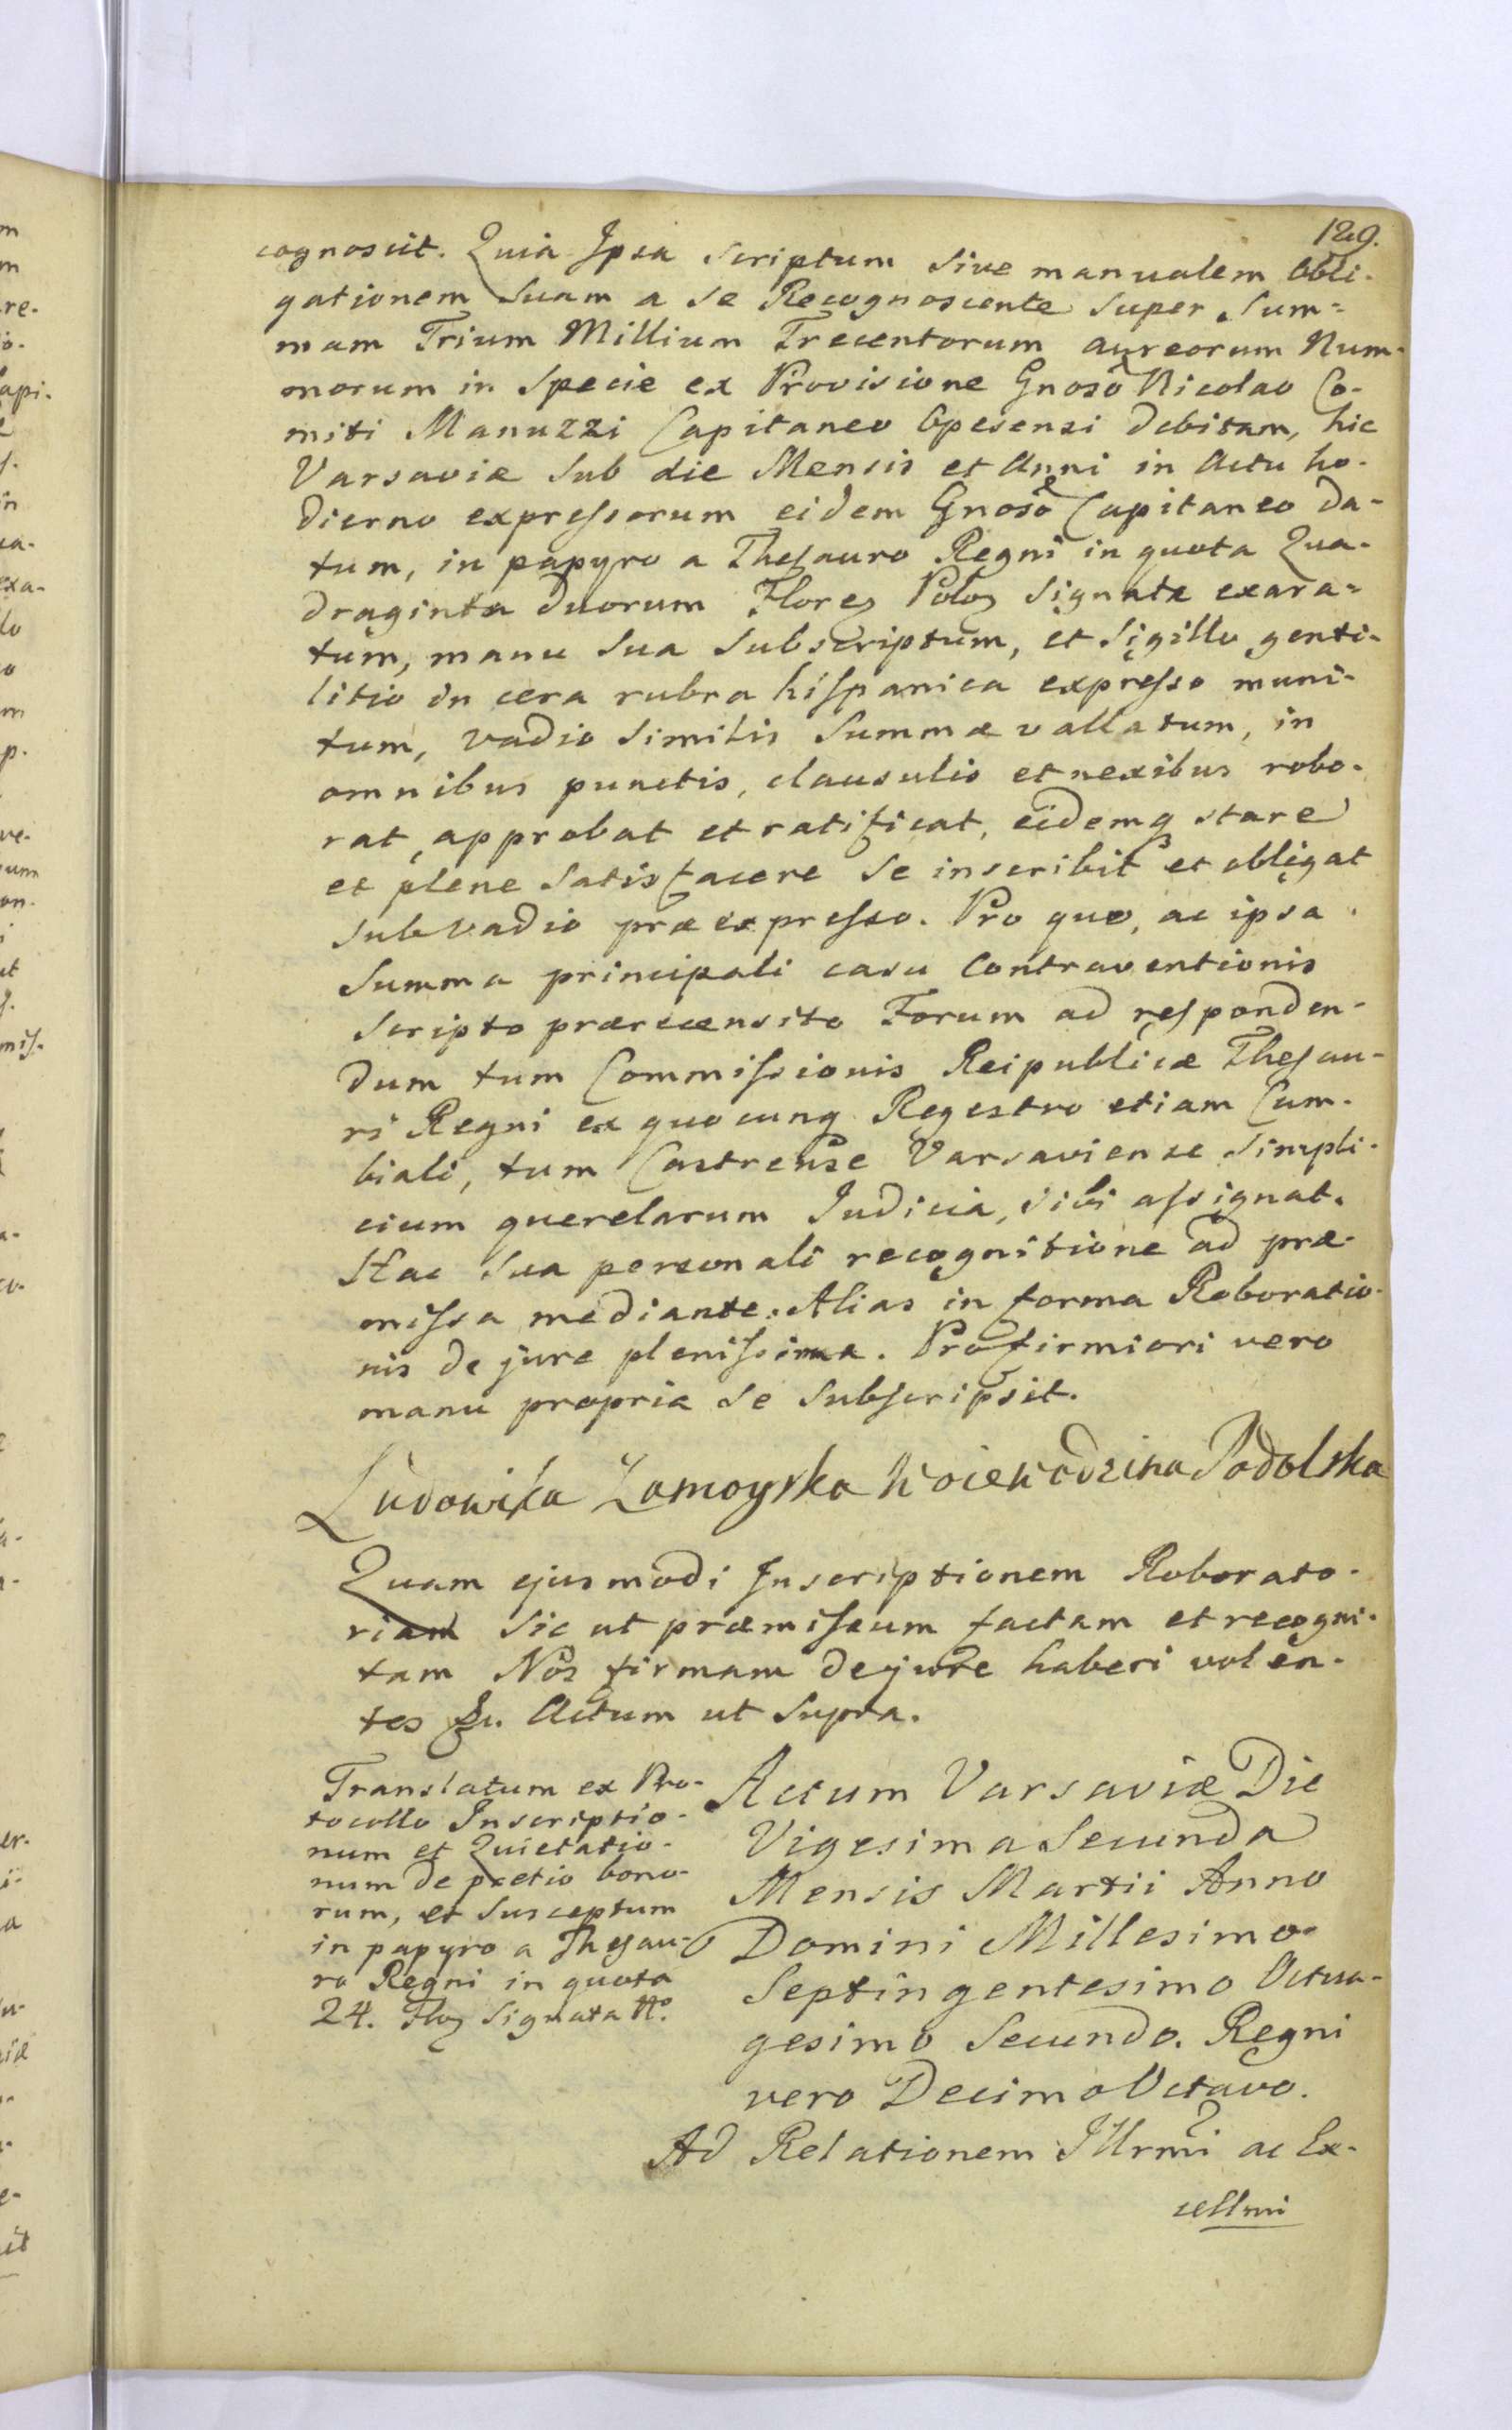 129.
cognoscit. Quia Ipsa Scriptum Sive manualem Obli-
gationem Suam a Se Recognoscente Super Sum=
mam Trium Millium Trecentorum aureorum Num-
morum in Specie ex Provisione Gnoso Nicolao Co-
miti Manuzzi Capitaneo Opesensi Debitam, hic
Varsaviæ Sub die Mensis et Anni in Actu ho-
dierno expressorum eidem Gnoso Capitaneo Da-
tum, in papyro a Thesauro Regni in quota Qua-
draginta Duorum Flores Polos Signata exara=
tum, manu Sua Subscriptum, et Sigillo genti-
litio in cera rubra hispanica expresso muni-
tum, vadio Similis Summæ vallatum, in
omnibus punctis, clausulis et nexibus robo-
rat, approbat et ratificat, eidemq stare
et plene Satisfacere Se inscribit et obligat
Sub Vadio præexpresso. Pro quo, ac ipsa
Summa principali casu Contraventionis
Scripto præcensito Forum ad responden-
dum tum Commissionis Reipublicæ Thesau-
ri Regni ex quocunq Regestro etiam Cum-
biali, tum Castrense Varsaviense Simpli-
cium querelarum Judicia, Sibi assignat.
Hac Sua personali recognitione ad præ-
missa mediante. Alias in forma Roboratio-
nis de jure plenissima. Pro firmiori vero
manu propria Se Subscripsit.
Ludowika Zamoyska Woiewodzina Podolska
Quam ejusmodi Inscriptionem Roborato-
riam Sic ut præmissum factam et recogni-
tam Nos firmam de jure haberi volen-
tes &c. Actum ut Supra.
Translatum ex Pro-
tocollo Inscriptio-
num et Quietatio-
num de pretio bono-
rum, et Susceptum
in papyro a Thesau-
ro Regni in quota
24. Flos Signata
Actum Varsaviæ Die
Vigesima Secunda
Mensis Martii Anno
Domini Millesimo
Septingentesimo Octua-
gesimo Secundo. Regni
vero Decimo Octavo.
Ad Relationem Illrmi ac Ex-
cellmi